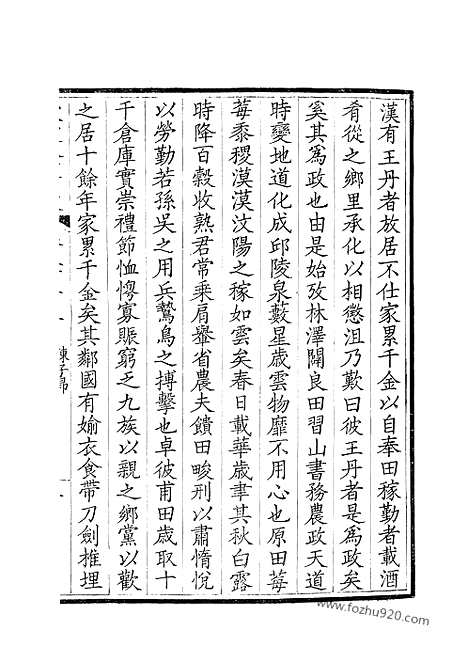 漢有王丹者放居不仕家累千金以自奉田稼勤者載酒
肴從之鄉里承化以相懲沮乃歎曰彼王丹者是爲政矣
奚其爲政也由是始攷林澤闢良田習山書務農政天道
時變地道化成邱陵泉藪星歳雲物靡不用心也原田莓
莓黍稷漠漠汶陽之稼如雲矣春日載華歳聿其秋白露
時降百穀收熟君常乘肩轝省農夫饋田畯刑以肅惰悅
以勞勤若孫吳之用兵鷙鳥之搏擊也卓彼甫田歳取十
千倉庫實崇禮節恤惸寡賑窮乏九族以親之鄉黨以歡
之居十餘年家累千金矣其鄰國有媮衣食帶刀劍椎埋
陳子昻
www.fozhu920.com